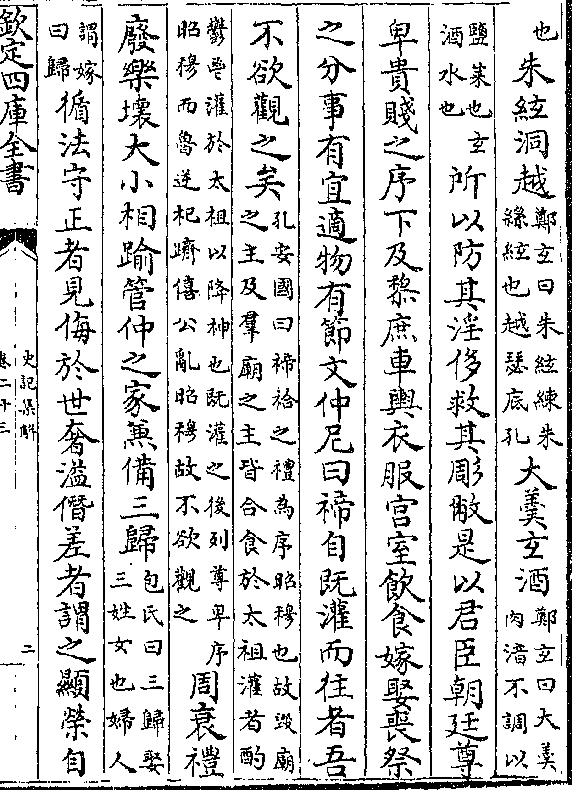 也朱絃洞越鄭玄曰朱絃練朱絲絃也越瑟底孔大羹玄酒鄭玄曰大羹肉湆不調以
鹽菜也玄酒水也所以防其淫侈救其彫敝是以君臣朝廷尊
卑貴賤之序下及黎庶車輿衣服宫室飲食嫁娶喪祭
之分事有宜適物有節文仲尼曰禘自既灌而往者吾
不欲觀之矣孔安國曰禘祫之禮為序昭穆也故毁廟之主及羣廟之主皆合食於太祖灌者酌
鬱鬯灌於太祖以降神也既灌之後列尊卑序昭穆而魯逆祀躋僖公亂昭穆故不欲觀之周衰禮
廢樂壞大小相踰管仲之家兼備三歸包氏曰三歸娶三姓女也婦人
謂嫁曰歸循法守正者見侮於世奢溢僭差者謂之顯榮自
欽定四庫全書
史記集解
卷二十三
二